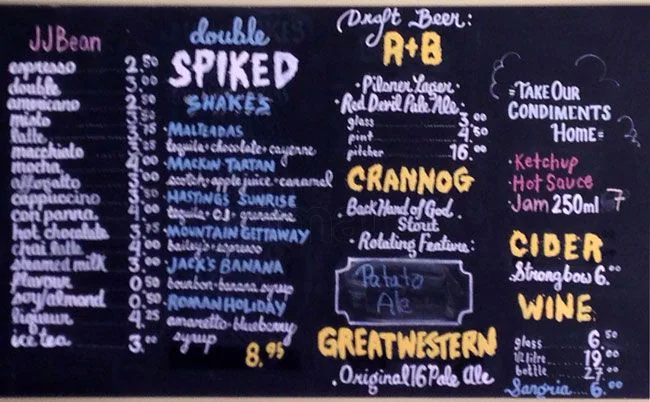 JJBean
espresso 2.50
double 3.00
americano 2.50
misto 3.50
latte 3.75
macchiato 3.25
mocha 4.00
affogatto 3.00
cappuccino 3.50
con panna 4.00
hot chocolate 3.75
chai latte 4.00
steamed milk 3.00
flavour 0.50
soy/almond 0.50
liqueur 4.25
ice tea 3.00
double
SPIKED
SHAKES
• MALTEADAS
tequila • chocolate • cayenne
• MACKIN TARTAN
scotch • apple juice • caramel
• HASTINGS SUNRISE
tequila • O.J. • grenadine
• MOUNTAIN GETTAWAY
bailey's • espresso
• JACK'S BANANA
bourbon • banana syrup
• ROMAN HOLIDAY
amaretto • blueberry
syrup
8.95
Draft Beer:
R+B
• Pilsner Lager •
• Red Devil Pale Ale •
glass 3.00
pint 4.50
pitcher 16.00
CRANNOG
• Back Hand of God
Stout
• Rotating Feature:
Patato
Ale
GREAT WESTERN
• Original 16 Pale Ale
=TAKE OUR
CONDIMENTS
HOME=
• Ketchup
• Hot Sauce
• Jam 250ml 7
CIDER
Strongbow 6.00
WINE
glass 6.50
1/2 litre 19.00
bottle 27.00
Sangria 6.00